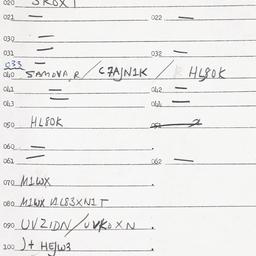 020 SKDX1
021 — 022 —
030
031 032 —
033
040 SAMOVA,R / C7AJN1K / HL80K
041 042
043 044
050 HL80K 051
060
061 062 —
070 M1WX
080 M1WX
090 UVZIDN/UVKDXN
100 )+ HEJW3